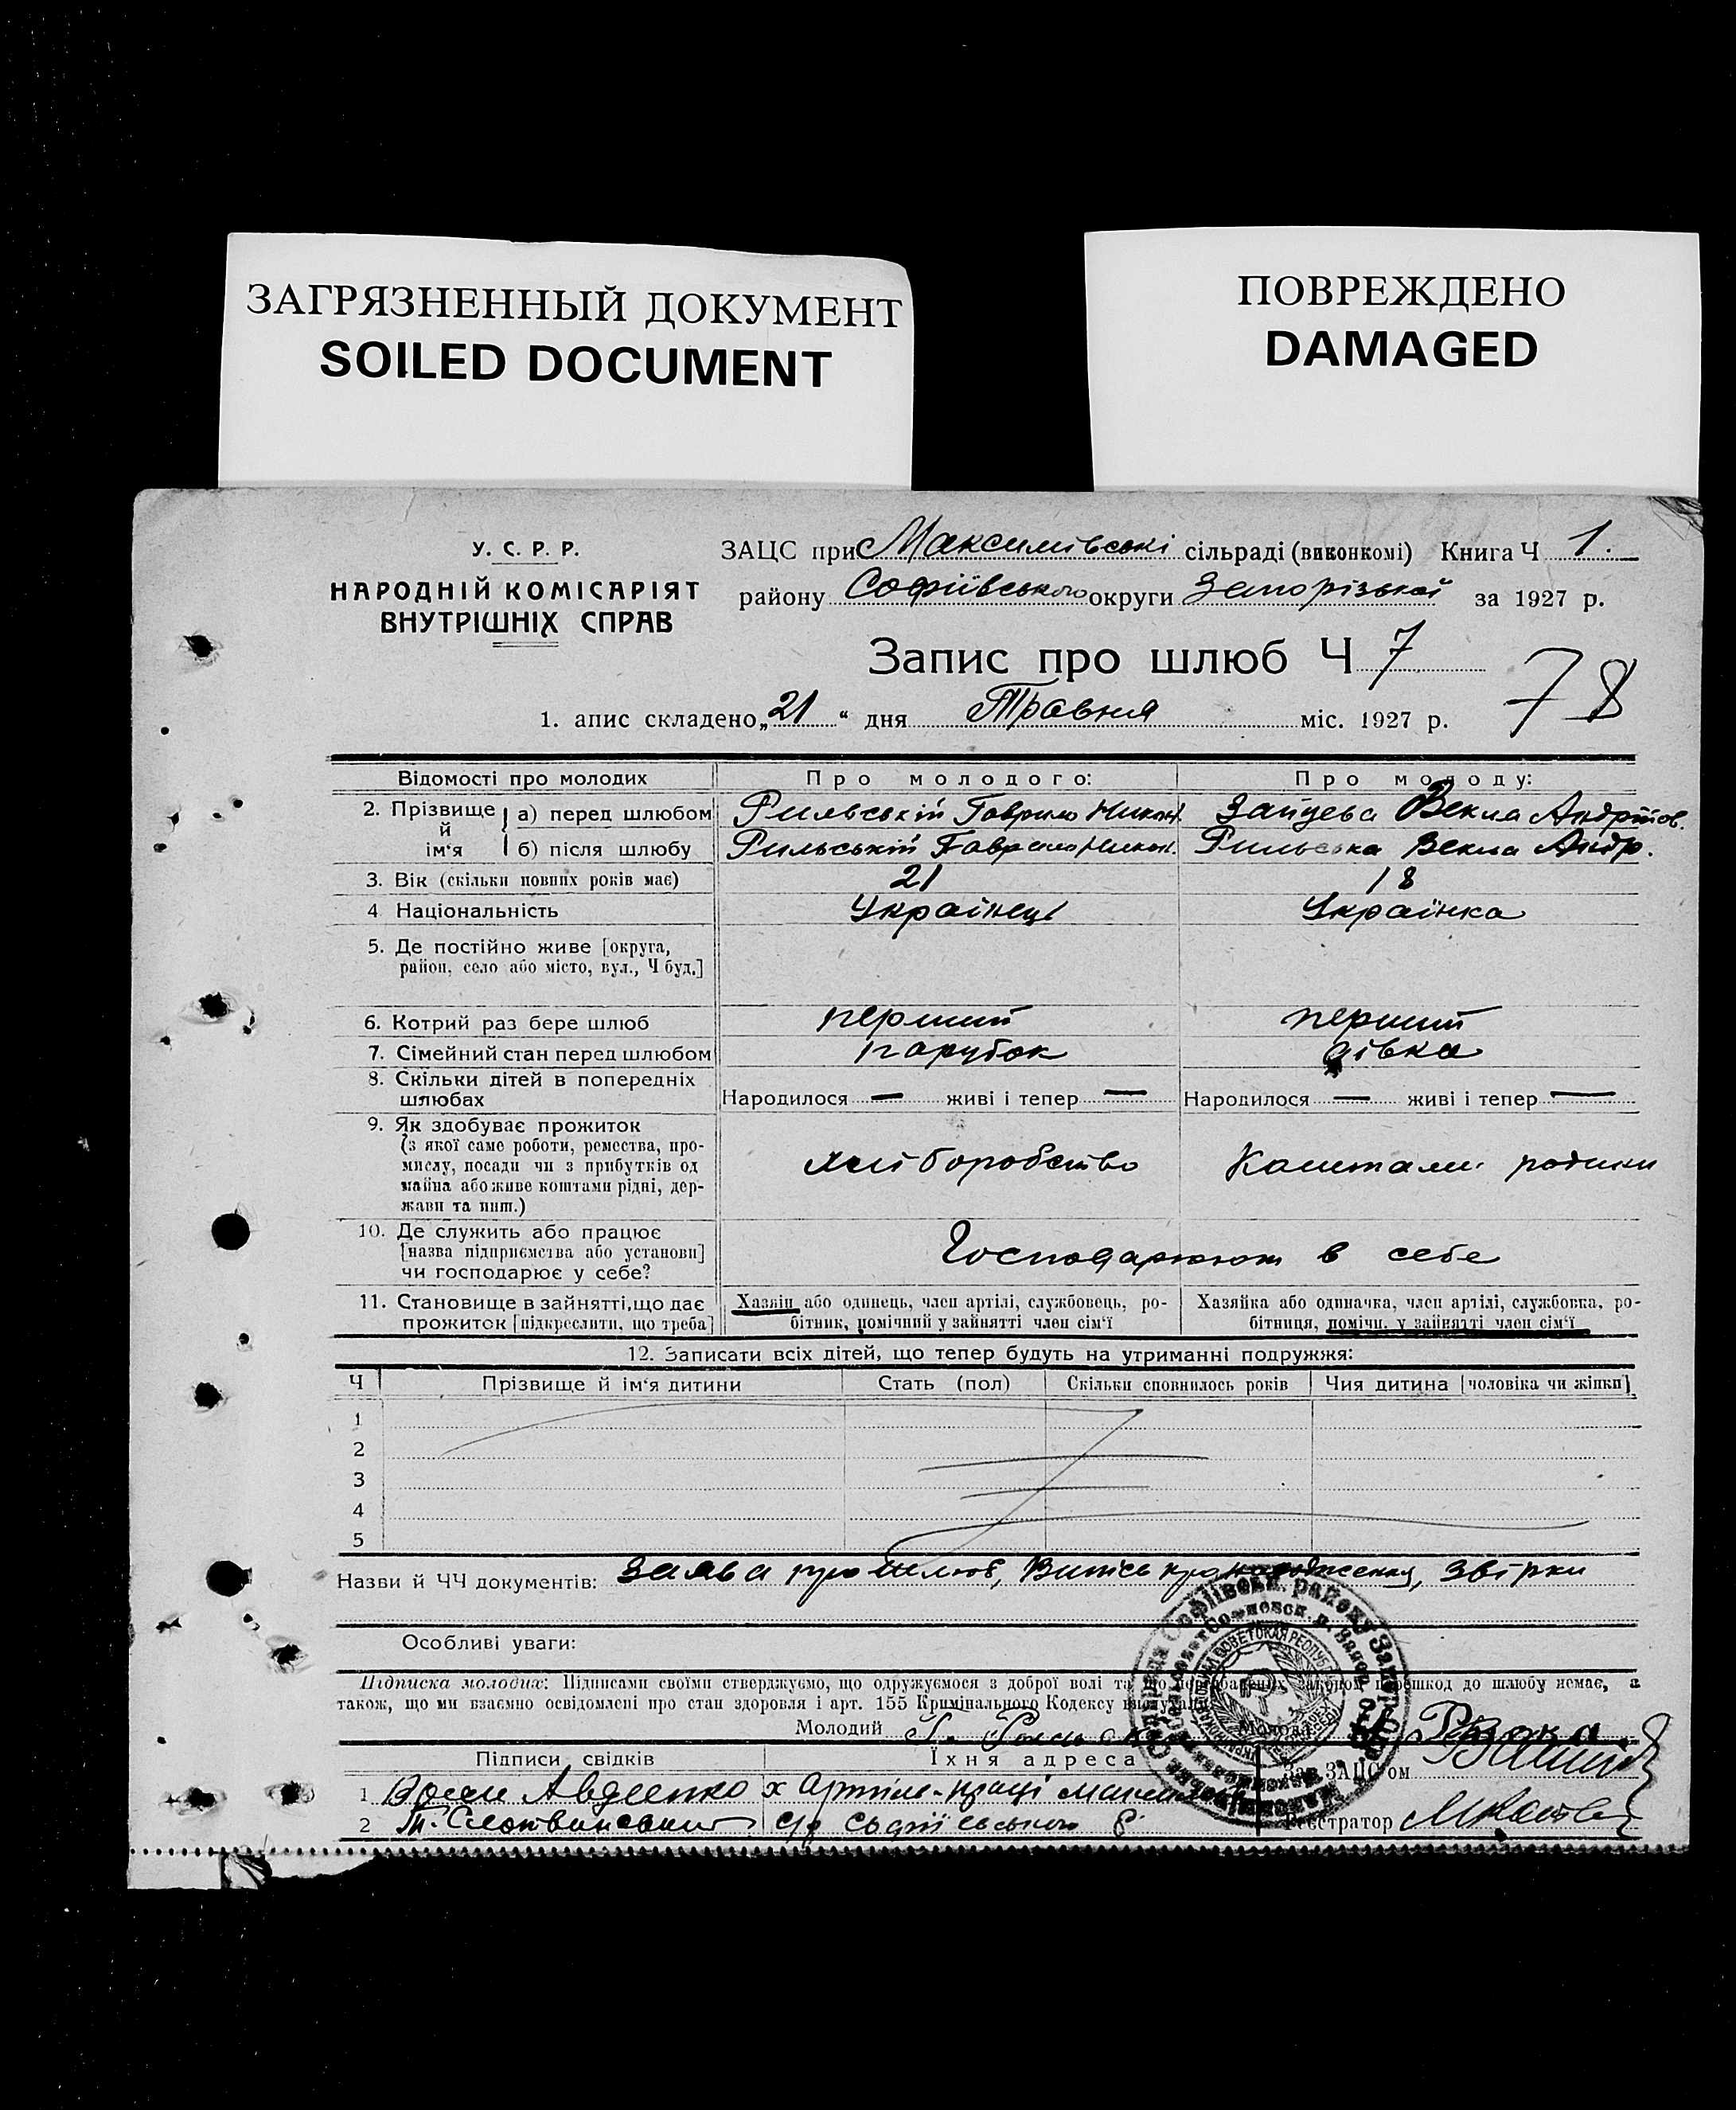 ЗАГРЯЗНЕННЫЙ ДОКУМЕНТ
SOILED DOCUMENT
ПОВРЕЖДЕНО
DAMAGED
У. С. Р. Р.
НАРОДНІЙ КОМІСАРІЯТ
ВНУТРІШНІХ СПРАВ
ЗАЦС при Максимівські сільраді (виконкомі) Книга Ч 1.
району Софіївського округи Запорізької за 1927 р.
Запис про шлюб Ч 7
78
1. апис складено „21“ дня Травня міс. 1927 р.
Відомості про молодих Про молодого: Про молоду:
2. Прізвище й ім'я а) перед шлюбом Рильській Гаврило Никон. Зайцева Векла Андріїов.
б) після шлюбу Рильській Гаврило Никон. Рильська Векла Андр.
3. Вік (скільки повних років має) 21 18
4 Національність Українець Українка
5. Де постійно живе [округа,
район, село або місто, вул., Ч буд.]
6. Котрий раз бере шлюб перший перший
7. Сімейний стан перед шлюбом парубок дівка
8. Скільки дітей в попередніх
шлюбах Народилося — живі і тепер — Народилося — живі і тепер —
9. Як здобуває прожиток
(з якої саме роботи, ремества, про-
мислу, посади чи з прибутків од
майна або живе коштами рідні, дер-
жави та инш.)
хліборобство Коштами родини
10. Де служить або працює
[назва підприємства або установи]
чи господарює у себе?
Господарюют в себе
11. Становище в зайнятті, що дає
прожиток [підкреслити, що треба]
Хазяїн або одинець, член артілі, службовець, ро-
бітник, помічний у зайнятті член сім'ї
Хазяйка або одиначка, член артілі, службовка, ро-
бітниця, помічн. у зайнятті член сім'ї
12. Записати всіх дітей, що тепер будуть на утриманні подружжя:
Ч Прізвище й ім'я дитини Стать (пол) Скільки сповнилось років Чия дитина [чоловіка чи жінки]
1
2
3
4
5
Назви й ЧЧ документів: Заява про шлюб, Витісь про народження, звірки
Особливі уваги:
Підписка молодих: Підписами своїми стверджуємо, що одружуємося з доброї волі та що передбачених законом перешкод до шлюбу немає, а
також, що ми взаємно освідомлені про стан здоровля і арт. 155 Кримінального Кодексу
Молодий Молода
Підписи свідків Їхня адреса Зав. ЗАЦС'ом
1 Авдеенко х Артіль-праці
2 Т. с/р
Реєстратор